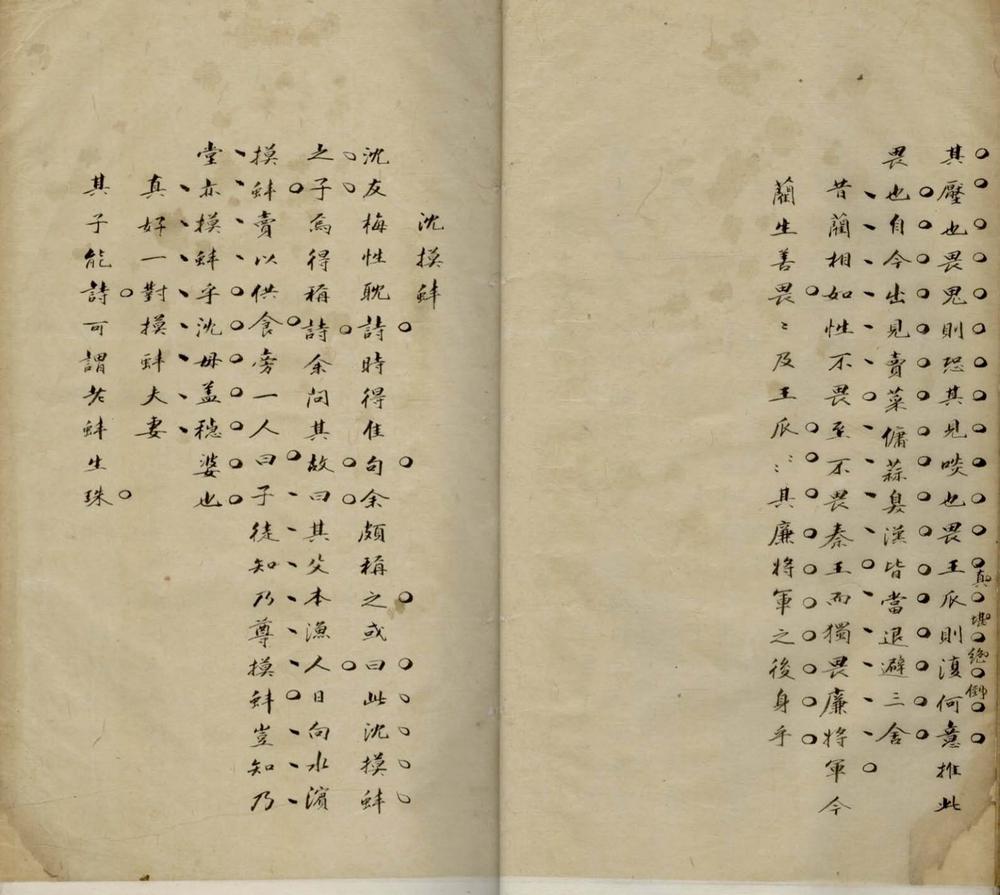 其壓也畏鬼則恐其見啖也畏王瓜則復何意推此
真堪絕倒
畏也自今出見賣菜傭蒜臭漢皆當退避三舍
昔藺相如性不畏虎不畏秦王而獨畏廉將軍今
藺生善畏〻及王瓜〻其廉將軍之後身乎
沈摸蚌
沈友梅性耽詩時得佳句余頗稱之或曰此沈摸蚌
之子焉得稱詩余問其故曰其父本漁人日向水濱
摸蚌賣以供食旁一人曰子徒知乃尊摸蚌豈知乃
堂亦摸蚌乎沈母盖穏婆也
真好一對摸蚌夫妻
其子能詩可謂老蚌生珠